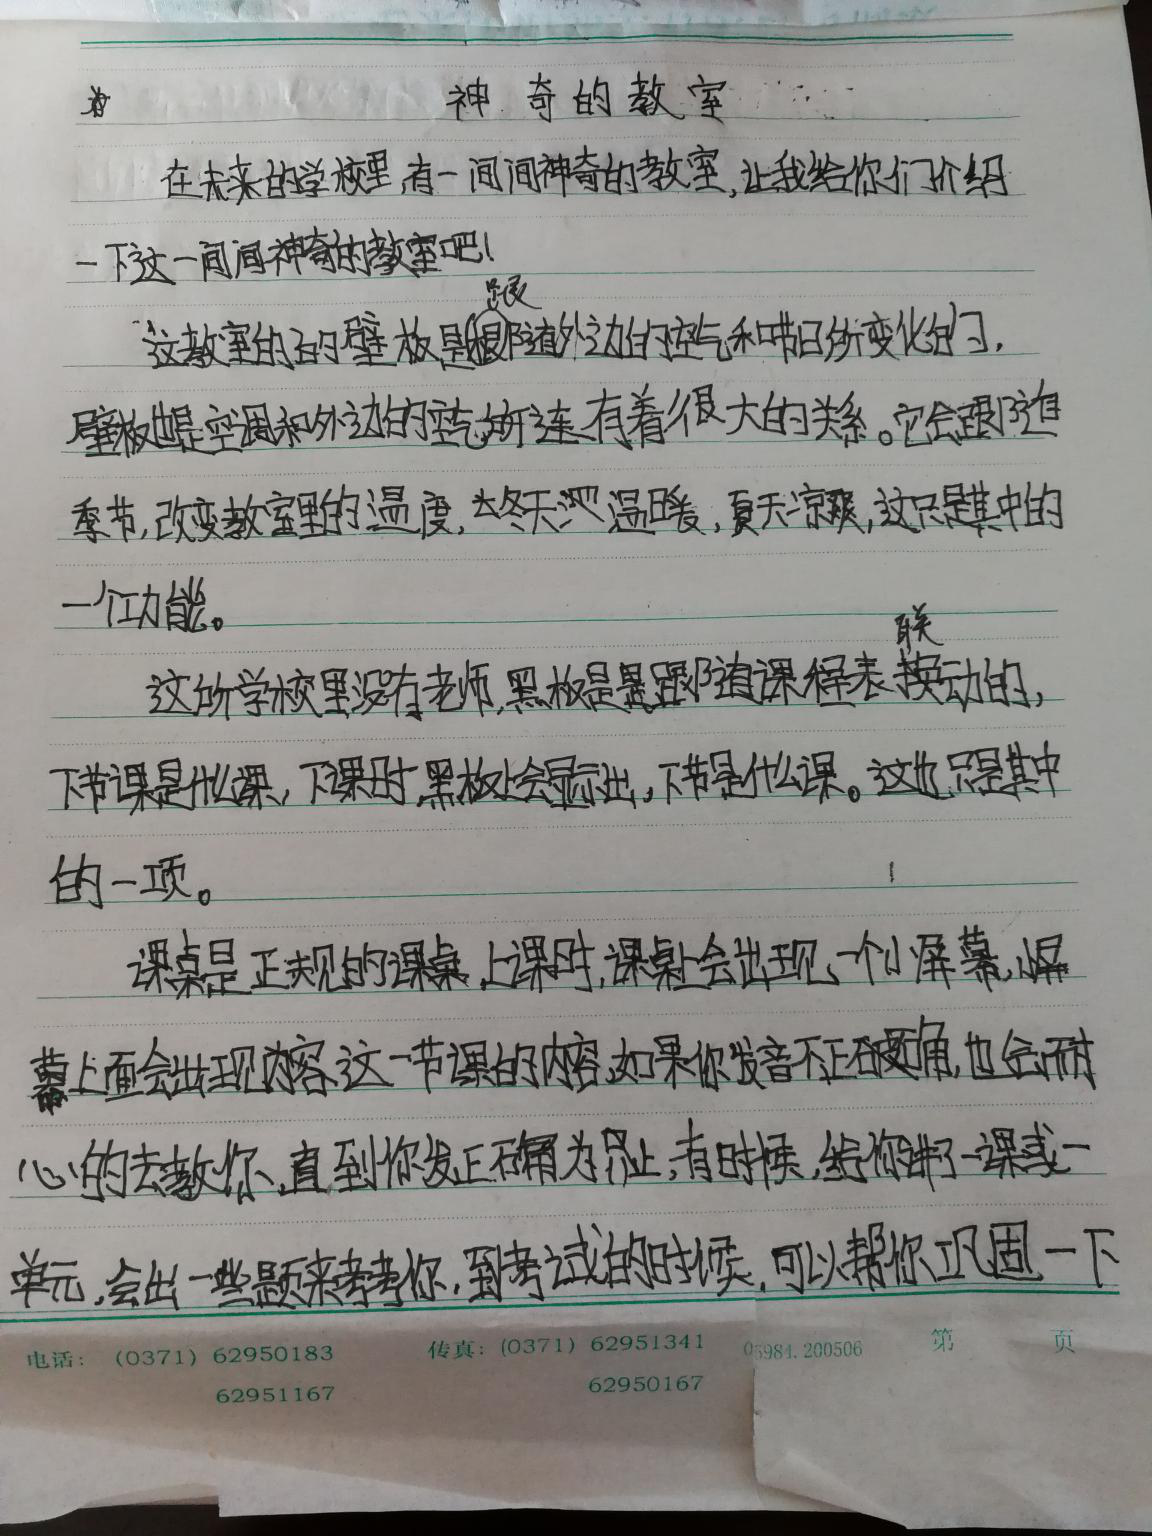 神奇的教室
在未来的学校里,有一间间神奇的教室,让我给你们介绍
一下这一间间神奇的教室吧!
跟
这教室的的壁板是根随外边的空气和节日所变化的,
壁板也是空调和外边的空气所连,有着很大的关系。它会跟随
季节,改变教室里的温度,冬天温暖,夏天凉爽,这只是其中的
一个功能。
联
这所学校里没有老师,黑板是跟随课程表换动的,
下节课是什么课,下课时,黑板上会显示出,下节是什么课。这也只是其中
的一项。
课桌是正规的课桌,上课时,课桌上会出现,一个小屏幕,小屏
幕上面会出现内容,这一节课的内容,如果你发音不正确,也会耐
心的去教你,直到你发正确为止,有时候,给你讲了一课或一
单元,会出一些题来考考你,到考试的时候,可以帮你巩固一下
电话: (0371) 62950183 传真: (0371) 62951341 05984.200506 第 页
62951167 62950167